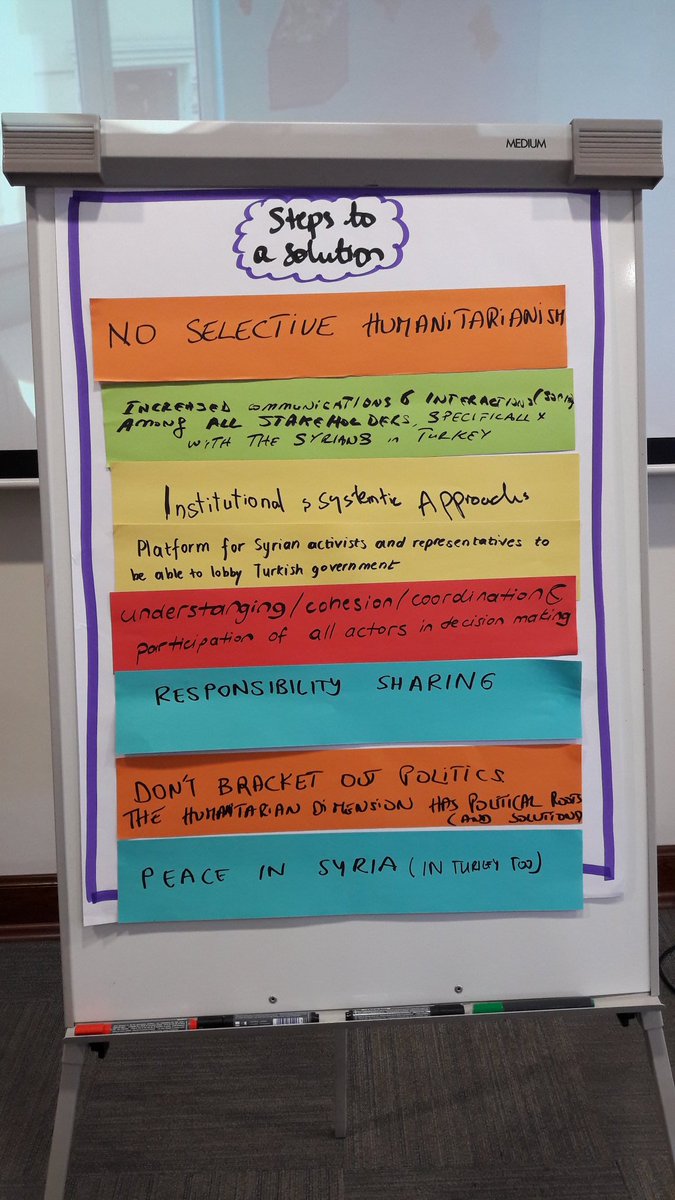 MEDIUM
Steps to
a solution
NO SELECTIVE HUMANITARIANISM
INCREASED COMMUNICATIONS & INTERACTIONS
AMONG ALL STAKEHOLDERS, SPECIFICALLY
WITH THE SYRIANS in TURKEY
Institutional & systematic Approachs
Platform for Syrian activists and representatives to
be able to lobby Turkish government
understanging/cohesion/coordination &
participation of all actors in decision making
RESPONSIBILITY SHARING
DON'T BRACKET OUT POLITICS
THE HUMANITARIAN DIMENSION HAS POLITICAL ROOTS
(AND SOLUTIONS)
PEACE IN SYRIA (IN TURKEY TOO)